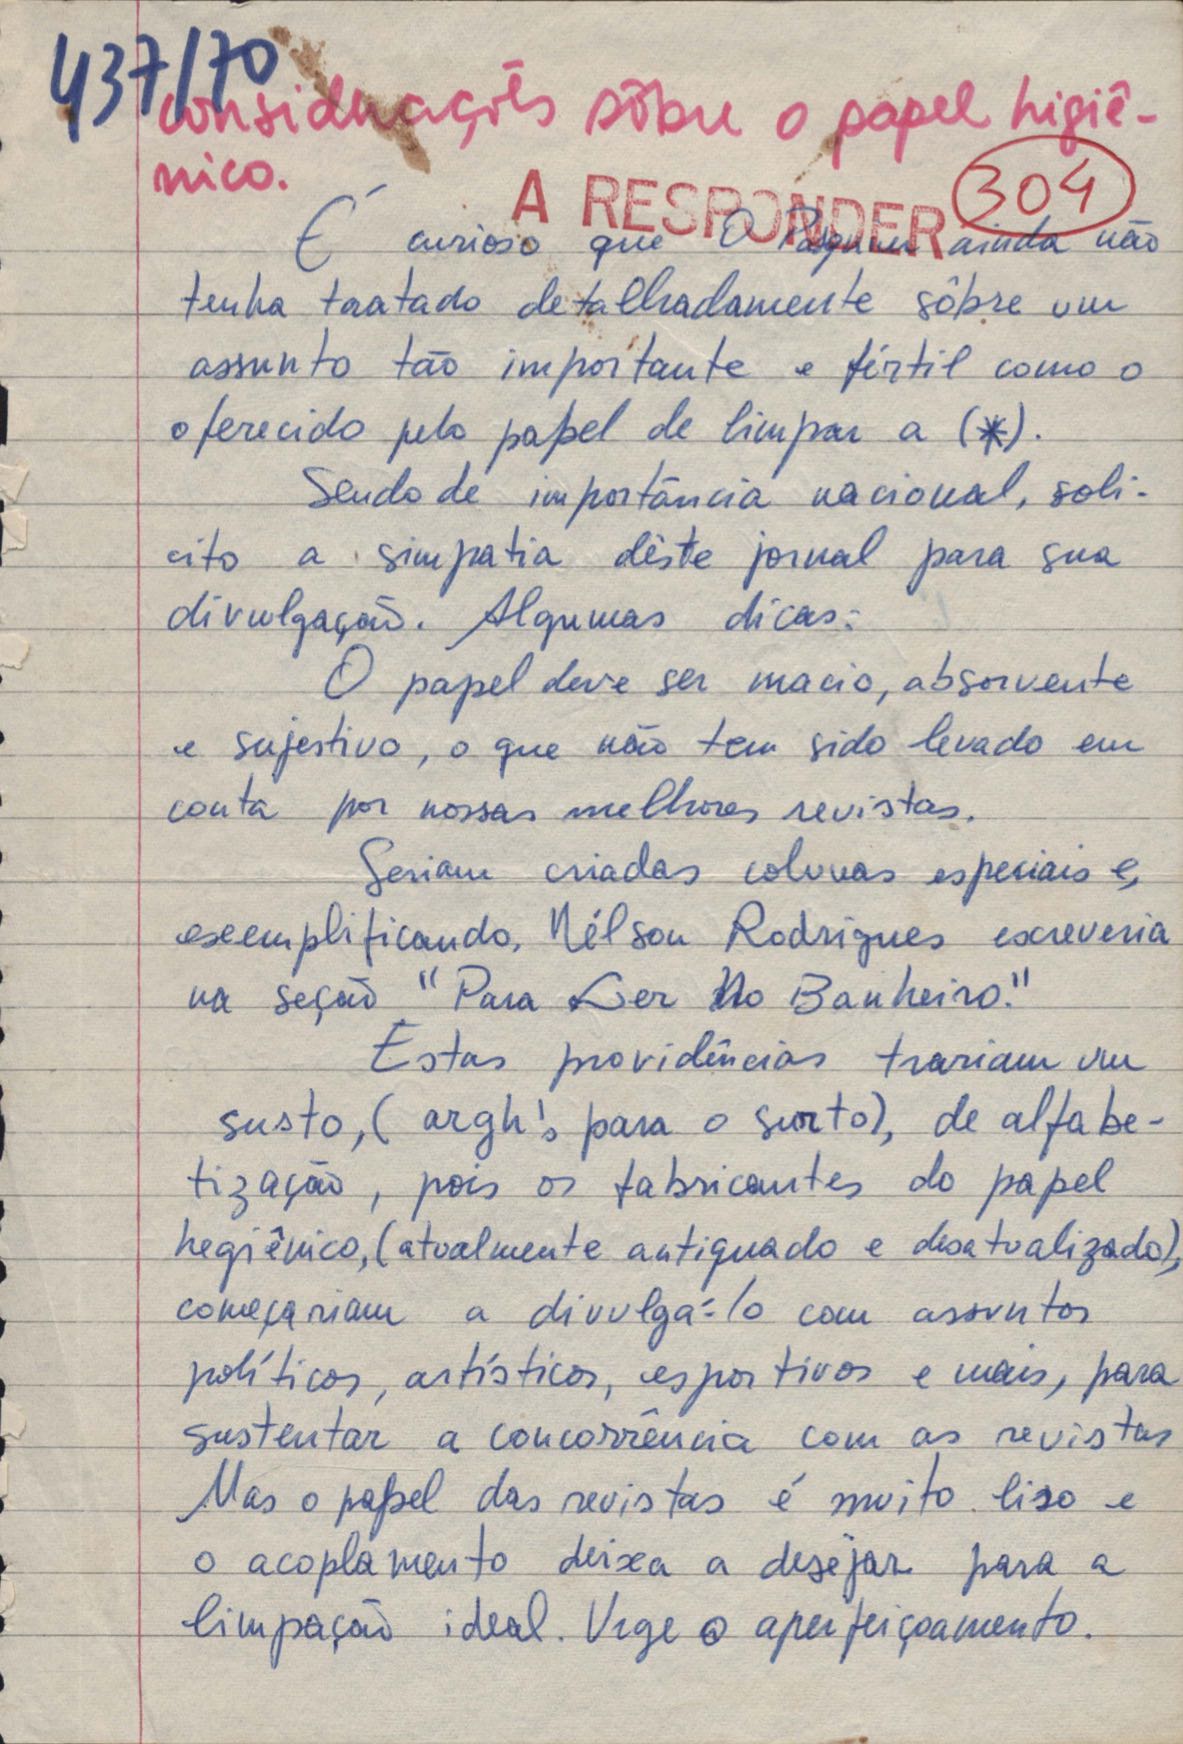 437/70
considerações sôbre o papel higiê-
nico.
A RESPONDER
304
É curioso que O Pasquim ainda não
tenha tratado detalhadamente sôbre um
assunto tão importante e fértil como o
oferecido pelo papel de limpar a (*).
Sendo de importância nacional, soli-
cito a simpatia dêste jornal para sua
divulgação. Algumas dicas:
O papel deve ser macio, absorvente
e sujestivo, o que não tem sido levado em
conta por nossas melhores revistas.
Seriam criadas colunas especiais e,
exemplificando, Nélson Rodrigues escreveria
na seção "Para Ler No Banheiro."
Estas providências trariam um
susto, (argh!, para o surto), de alfabe-
tização, pois os fabricantes do papel
hegiênico, (atualmente antiquado e desatualizado),
começariam a divulgá-lo com assuntos
políticos, artísticos, esportivos e mais, para
sustentar a concorrência com as revistas
Mas o papel das revistas é muito liso e
o acoplamento deixa a desejar para a
limpação ideal. Urge o aperfeiçoamento.